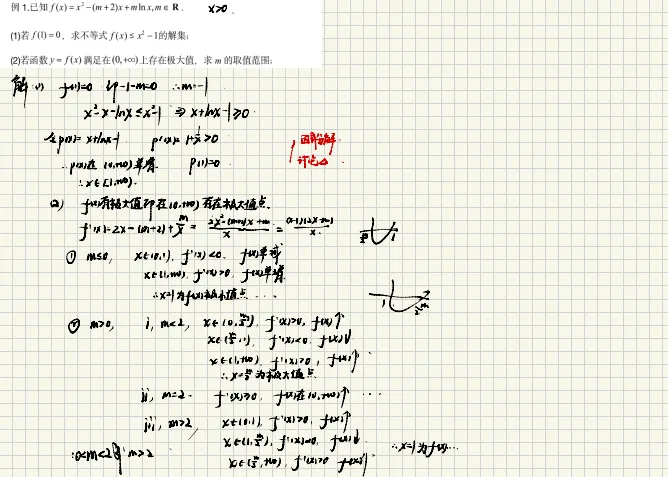 例 1.已知 f(x)=x²-(m+2)x+m ln x, m∈R. x>0.
(1)若 f(1)=0，求不等式 f(x)≤x²-1的解集;
(2)若函数 y=f(x) 满足在(0,+∞)上存在极大值，求 m 的取值范围;
解 (1) f(1)=0 即 -1-m=0 ∴m=-1
x²-x-lnx≤x²-1 ⇒ x+lnx-1≥0
令p(x)=x+lnx-1 p'(x)=1+1/x>0
因式分解
∴p(x)在(0,+∞)单增. p(1)=0
讨论△.
∴x∈[1,+∞).
(2) f(x)有极大值即在(0,+∞)存在极大值点.
f'(x)=2x-(m+2)+m/x = (2x²-(m+2)x+m)/x = (x-1)(2x-m)/x
① m≤0, x∈(0,1), f'(x)<0, f(x)单减
x∈(1,+∞), f'(x)>0, f(x)单增
∴x=1为f(x)极小值点····
② m>0, i, m<2, x∈(0,m/2), f'(x)>0, f(x)↑
x∈(m/2,1), f'(x)<0, f(x)↓
x∈(1,+∞), f'(x)>0, f(x)↑
∴x=m/2为极大值点
ii, m=2. f'(x)≥0, f(x)在(0,+∞)↑ ···
iii, m>2, x∈(0,1), f'(x)>0, f(x)↑
x∈(1,m/2), f'(x)<0, f(x)↓ ∴x=1为f(x)···
∴0<m<2或m>2 x∈(m/2,+∞), f'(x)>0 f(x)↑